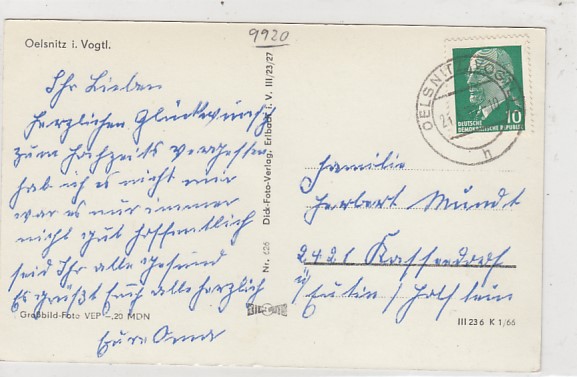 9920
Oelsnitz i. Vogtl.
Ihr Lieben
herzlichen Glückwunsch
zum Hochzeits vergessen
hab ich es nicht mir
war es nur immer
nicht gut hoffentlich
seid Ihr alle gesund
Es grüßt Euch alle herzlich
Eure Oma
Großbild-Foto VEP -,20 MDN
Nr. 626 Dick-Foto-Verlag, Erlbach i. V. III/23/27
OELSNITZ (VOGTL)
h
10
DEUTSCHE
DEMOKRATISCHE REPUBLIK
Familie
Herbert Mundt
2421 Kasseedorf
ü/
Eutin/Holstein
III 23 6 K 1/66